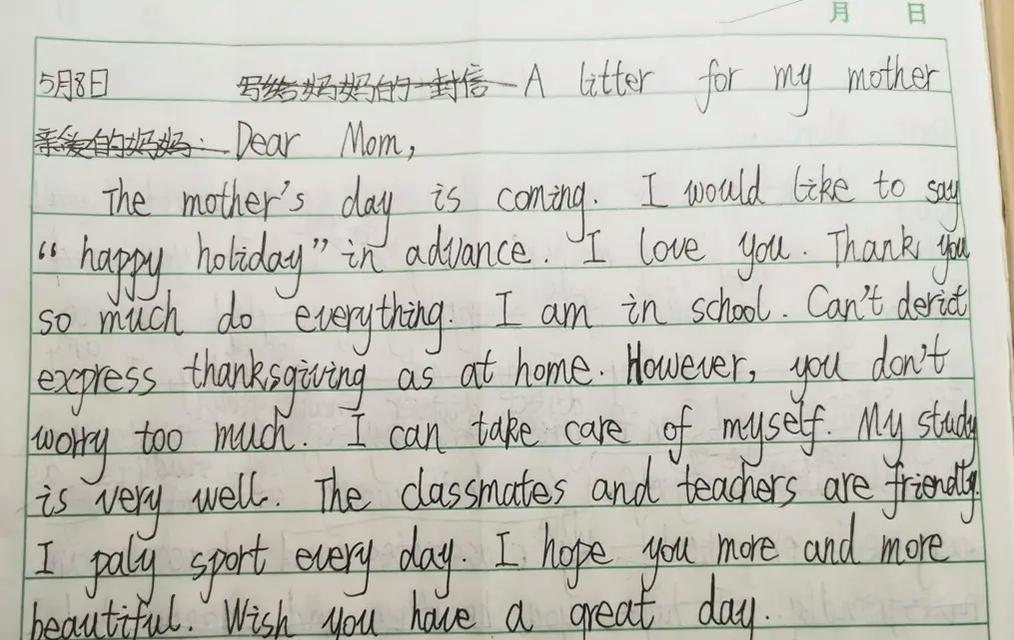 月 日
5月8日 写给妈妈的一封信 A litter for my mother
亲爱的妈妈: Dear Mom,
The mother's day is coming. I would like to say
“happy holiday” in advance. I love you. Thank you
so much do everything. I am in school. Can't derict
express thanksgiving as at home. However, you don't
worry too much. I can take care of myself. My study
is very well. The classmates and teachers are friendly.
I paly sport every day. I hope you more and more
beautiful. Wish you have a great day.